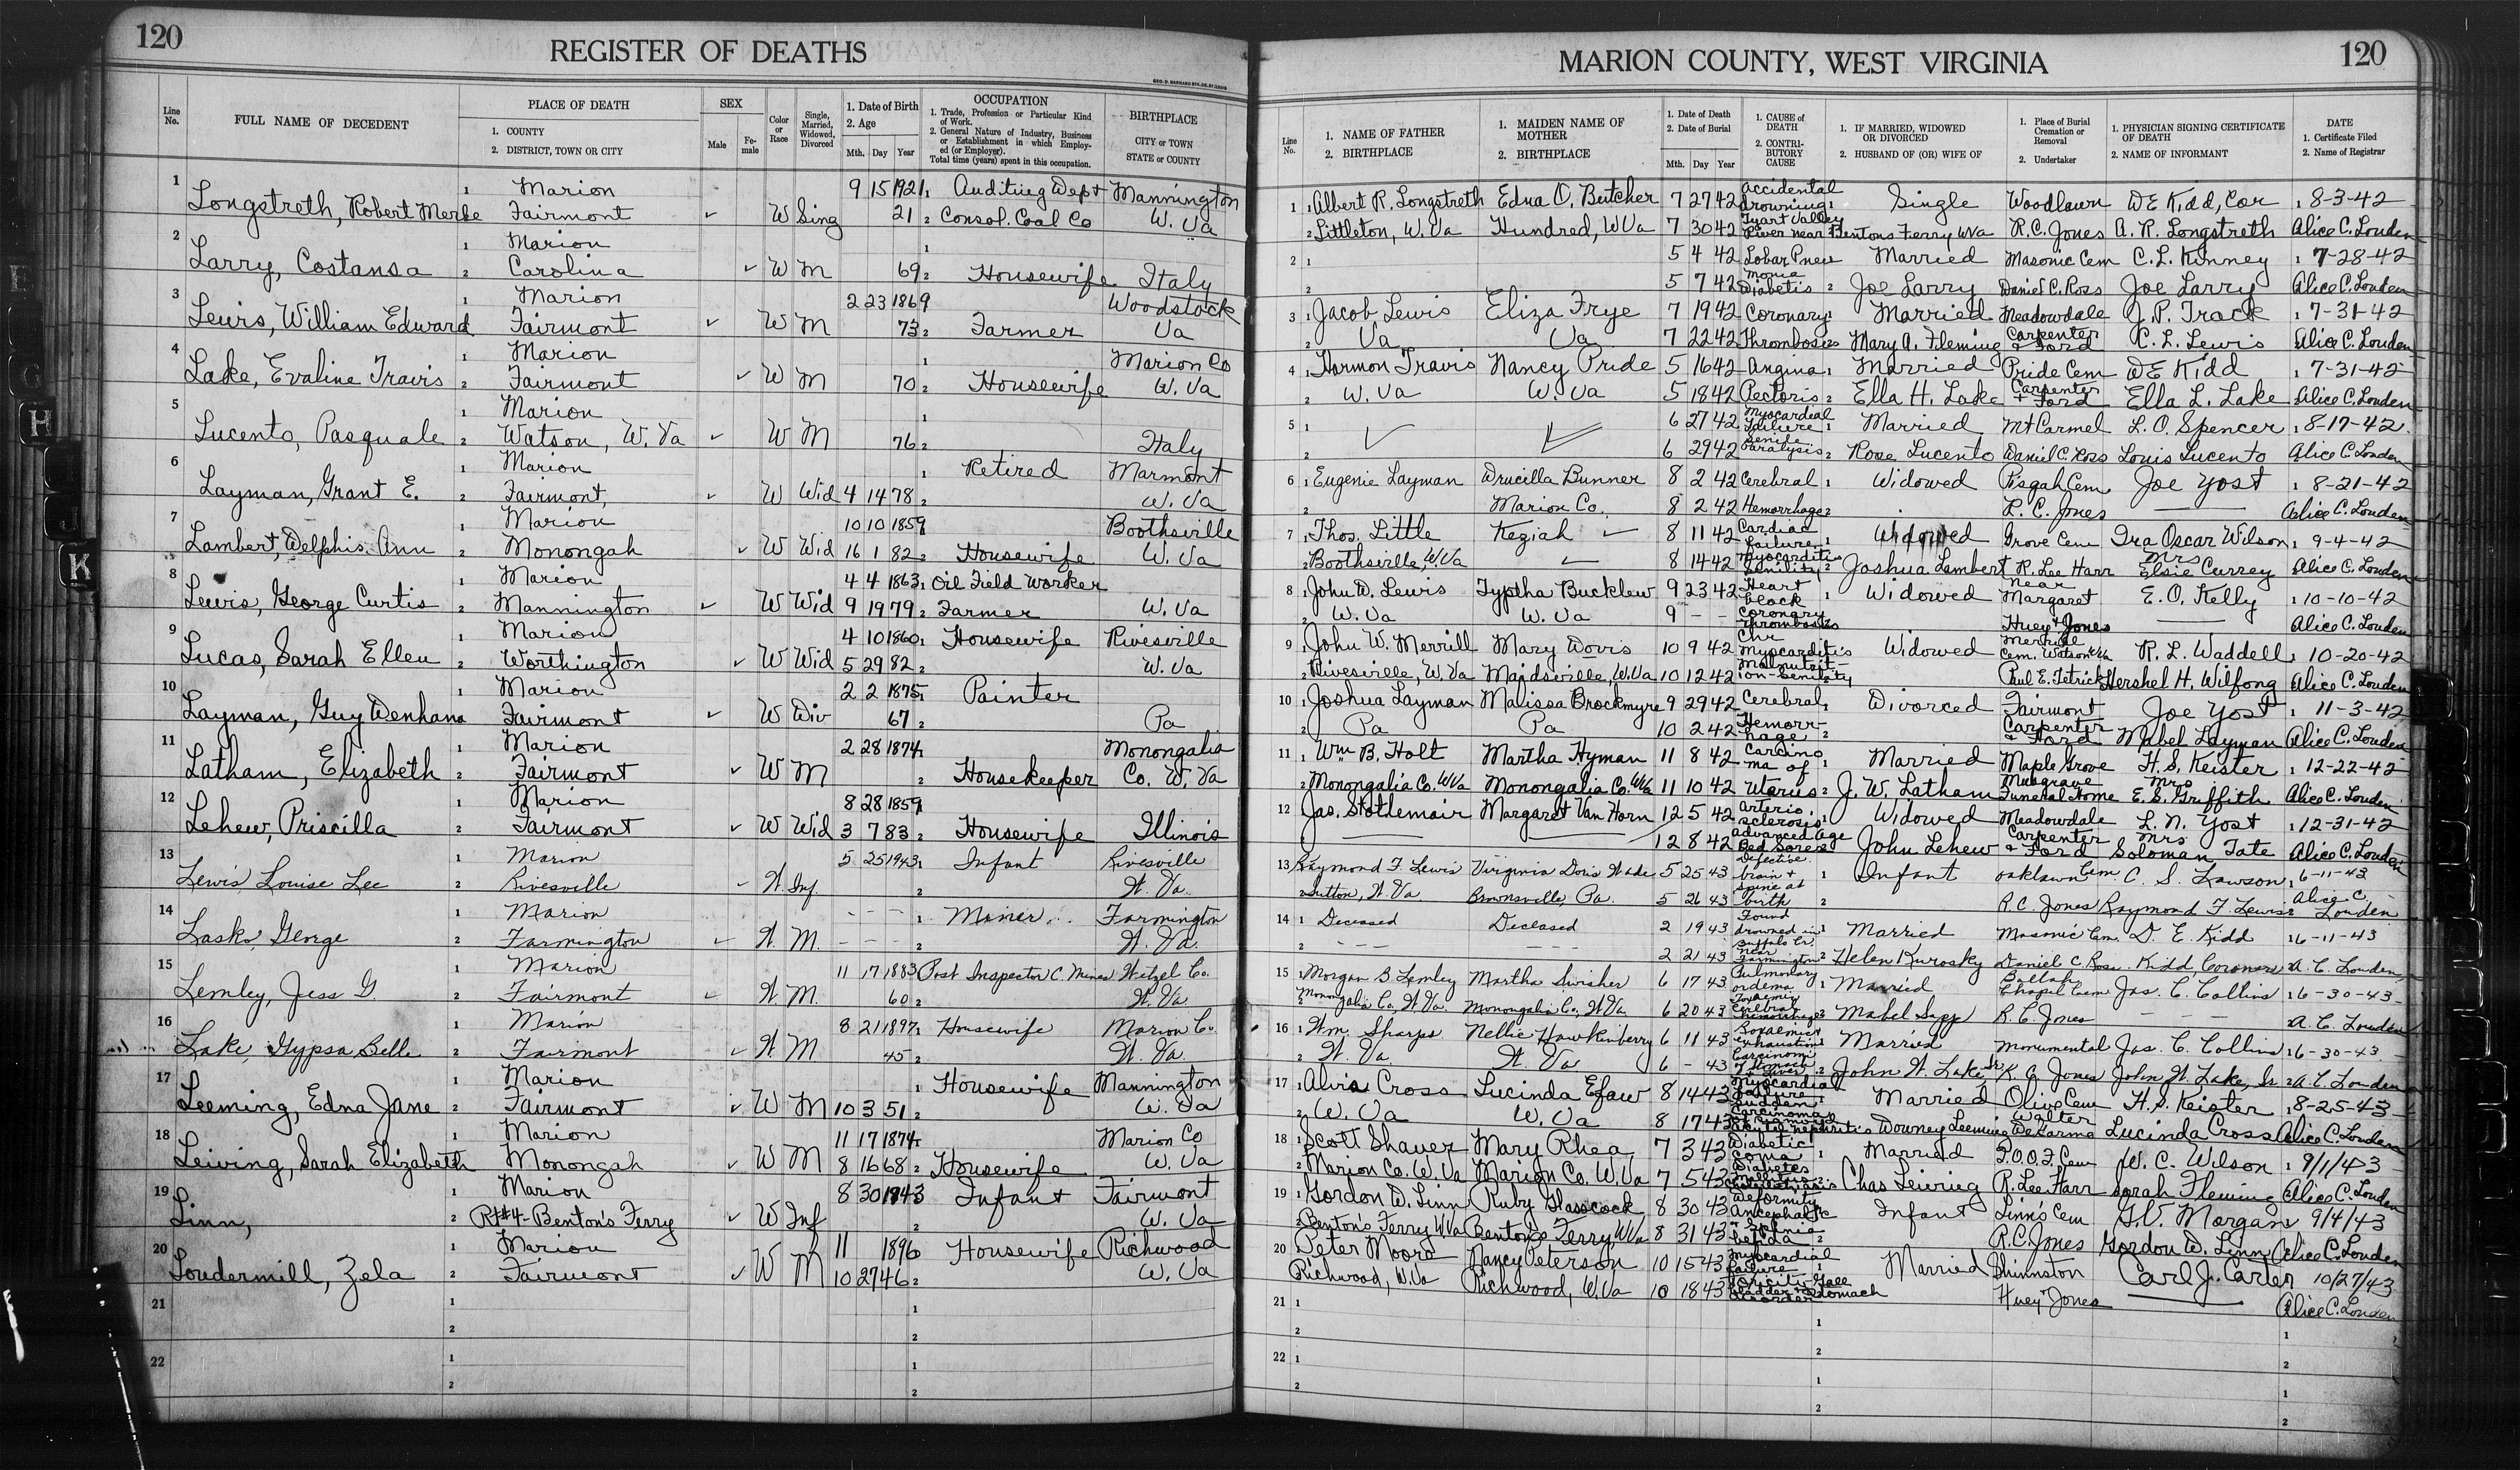 120
REGISTER OF DEATHS
Line No.
FULL NAME OF DECEDENT
PLACE OF DEATH
1. COUNTY
2. DISTRICT, TOWN OR CITY
SEX
Male
Fe-male
Color or Race
Single, Married, Widowed, Divorced
1. Date of Birth
2. Age
Mth. Day Year
OCCUPATION
1. Trade, Profession or Particular Kind of Work.
2. General Nature of Industry, Business or Establishment in which Employed (or Employer).
Total time (years) spent in this occupation.
BIRTHPLACE
CITY or TOWN
STATE or COUNTY
1 1 Marion 9 15 1921 1 Auditing Dept Mannington
Longstreth, Robert Merle 2 Fairmont ✓ W Sing 21 2 Consol. Coal Co W. Va
2 1 Marion 1
Larry, Costansa 2 Carolina ✓ W M 69 2 Housewife Italy
3 1 Marion 2 23 1869 Woodstock
Lewis, William Edward 2 Fairmont ✓ W M 73 2 Farmer Va
4 1 Marion 1 Marion Co
Lake, Evaline Travis 2 Fairmont ✓ W M 70 2 Housewife W. Va
5 1 Marion 1
Lucento, Pasquale 2 Watson, W. Va ✓ W M 76 2 Italy
6 1 Marion 1 Retired Marmont
Layman, Grant E. 2 Fairmont, ✓ W Wid 4 14 78 2 W. Va
7 1 Marion 10 10 1859 Boothsville
Lambert, Delphis Ann 2 Monongah ✓ W Wid 16 1 82 2 Housewife W. Va
8 1 Marion 4 4 1863 1 Oil Field Worker
Lewis, George Curtis 2 Mannington ✓ W Wid 9 19 79 2 Farmer W. Va
9 1 Marion 4 10 1860 1 Housewife Rivesville
Lucas, Sarah Ellen 2 Worthington ✓ W Wid 5 29 82 2 W. Va
10 1 Marion 2 2 1875 1 Painter
Layman, Guy Denham 2 Fairmont ✓ W Div 67 2 Pa
11 1 Marion 2 28 1874 1 Monongalia
Latham, Elizabeth 2 Fairmont ✓ W M 2 Housekeeper Co. W. Va
12 1 Marion 8 28 1859 1
Lehew, Priscilla 2 Fairmont ✓ W Wid 3 7 83 2 Housewife Illinois
13 1 Marion 5 25 1943 1 Infant Rivesville
Lewis Louise Lee 2 Rivesville ✓ W Inf 2 W. Va.
14 1 Marion - - - 1 Miner Farmington
Lasko, George 2 Farmington ✓ W. M. - - - 2 W. Va.
15 1 Marion 11 17 1883 Post Inspector C. Mines Wetzel Co.
Lemley, Jess G. 2 Fairmont ✓ W. M. 60 2 W. Va.
16 1 Marion 8 21 1897 1 Housewife Marion Co.
Lake, Gypsa Belle 2 Fairmont ✓ W M 45 2 W. Va.
17 1 Marion 1 Housewife Mannington
Leeming, Edna Jane 2 Fairmont ✓ W M 10 3 51 2 W. Va
18 1 Marion 11 17 1874 1 Marion Co
Leiving, Sarah Elizabeth 2 Monongah ✓ W M 8 16 68 2 Housewife W. Va
19 1 Marion 8 30 1943 Infant Fairmont
Linn, 2 Rt#4-Benton's Ferry ✓ W Inf 2 W. Va
20 1 Marion 11 1896 Housewife Richwood
Loudermill, Zela 2 Fairmont ✓ W M 10 27 46 2 W. Va
21 1 1
2 2
22 1 1
2 2
MARION COUNTY, WEST VIRGINIA
120
Line No.
1. NAME OF FATHER
2. BIRTHPLACE
1. MAIDEN NAME OF MOTHER
2. BIRTHPLACE
1. Date of Death
2. Date of Burial
Mth. Day Year
1. CAUSE of DEATH
2. CONTRIBUTORY CAUSE
1. IF MARRIED, WIDOWED OR DIVORCED
2. HUSBAND OF (OR) WIFE OF
1. Place of Burial Cremation or Removal
2. Undertaker
1. PHYSICIAN SIGNING CERTIFICATE OF DEATH
2. NAME OF INFORMANT
DATE
1. Certificate Filed
2. Name of Registrar
1 1 Albert R. Longstreth Edna O. Butcher 7 27 42 Accidental drowning 1 Single Woodlawn D E Kidd, Cor 1 8-3-42
2 Littleton, W. Va Hundred, W Va 7 30 42 Tygart Valley River near Bentons Ferry W Va R.C. Jones A. R. Longstreth Alice C. Louden
2 1 5 4 42 Lobar Pneu Married Masonic Cem C. L. Kinney 1 7-28-42
2 5 7 42 monia Diabetis 2 Joe Larry Daniel C. Ross Joe Larry Alice C. Louden
3 1 Jacob Lewis Eliza Frye 7 19 42 Coronary 1 Married Meadowdale J. P. Trach 1 7-31-42
2 Va Va 7 22 42 Thrombosis 2 Mary A. Fleming Carpenter & Ford C. L. Lewis Alice C. Louden
4 1 Harmon Travis Nancy Pride 5 16 42 Angina 1 Married Pride Cem D E Kidd 1 7-31-42
2 W. Va W. Va 5 18 42 Pectoris 2 Ella H. Lake Carpenter + Ford Ella L. Lake Alice C. Louden
5 1 ✓ ✓ 6 27 42 Myocardial Failure 1 Married Mt Carmel L. O. Spencer 1 8-17-42
2 6 29 42 Senile Paralysis 2 Rose Lucento Daniel C. Ross Louis Lucento Alice C. Louden
6 1 Eugenie Layman Drucilla Bunner 8 2 42 Cerebral 1 Widowed Pisgah Cem. Joe Yost 1 8-21-42
2 Marion Co. 8 2 42 Hemorrhage 2 R. C. Jones — Alice C. Louden
7 1 Thos. Little Keziah — 8 11 42 Cardiac Failure 1 Widowed Grove Cem Ira Oscar Wilson 1 9-4-42
2 Boothsville, W. Va — 8 14 42 Myocarditis Senility 2 Joshua Lambert R. Lee Harr Mrs Elsie Currey Alice C. Louden
8 1 John W. Lewis Typtha Bucklew 9 23 42 Heart Block 1 Widowed near Margaret E. O. Kelly 1 10-10-42
2 W. Va W. Va 9 - - Coronary Thrombosis Huey + Jones — Alice C. Louden
9 1 John W. Merrill Mary Davis 10 9 42 Chr Myocarditis Widowed Merrill Cem. Watson W Va R. L. Waddell 1 10-20-42
2 Rivesville, W. Va Maidsville, W. Va 10 12 42 Malnutrition-Senility Paul E. Tetrick Hershel H. Wilfong Alice C. Louden
10 1 Joshua Layman Malissa Brockmyre 9 29 42 Cerebral 1 Divorced Fairmont Joe Yost 1 11-3-42
2 Pa Pa 10 2 42 Hemorrhage 2 Carpenter & Ford Mabel Layman Alice C. Louden
11 1 Wm B. Holt Martha Hyman 11 8 42 Carcinoma of 1 Married Maple Grove H. S. Keister 1 12-22-42
2 Monongalia Co. W Va Monongalia Co. W Va 11 10 42 Utarus 2 J. W. Latham Musgrave Funeral Home Mrs E. S. Griffith Alice C. Louden
12 1 Jas. Stottlemair Margaret Van Horn 12 5 42 Arterio sclerosis 1 Widowed Meadowdale L. N. Yost 1 12-31-42
2 — — 12 8 42 Advanced Age Bed Sores 2 John Lehew Carpenter & Ford Mrs Soloman Tate Alice C. Louden
13 1 Raymond F. Lewis Virginia Doris Wade 5 25 43 Defective brain + 1 Infant Oaklawn Cem C. S. Lawson 1 6-11-43
2 Sutton, W. Va Brownsville, Pa. 5 26 43 spine at birth 2 R.C. Jones Raymond F. Lewis 2 Alice C. Louden
14 1 Deceased Deceased 2 19 43 Found drowned in 1 Married Masonic Cem. D. E. Kidd 1 6-11-43
2 - - - - - - 2 21 43 Buffalo Cr. near Farmington 2 Helen Kurosky Daniel C. Ross Kidd, Coroner 2 A. C. Louden
15 1 Morgan B Lemley Martha Swisher 6 17 43 Pulmonary oedema 1 Married Beulah Chapel Cem Jas. C. Collins 1 6-30-43
2 Monongalia Co, W. Va. Monongalia Co, W Va 6 20 43 Toxaemia Cerebral hemorrhage 2 Mabel Sapp R. C. Jones — — A. C. Louden
16 1 Wm. Sharps Nellie Hawkinberry 6 11 43 Exhaustion 1 Married Monumental Jas. C. Collins 1 6-30-43
2 W. Va W. Va 6 - 43 Carcinoma of Stomach + Liver 2 John W. Lake, Sr. R. C. Jones John W. Lake, Sr. 2 A. C. Louden
17 1 Alvis Cross Lucinda Efaw 8 14 43 Myocardial Failure Sudden Married Olive Cem H. S. Keister 1 8-25-43
2 W. Va W. Va 8 17 43 Carcinoma nephritis Downey Leeming Walter Lucinda Cross Alice C. Louden
18 1 Scott Shaver Mary Rhea 7 3 43 Diabetic Coma 1 Married I.O.O.F. Cem W. C. Wilson 1 9/1/43
2 Marion Co. W. Va Marion Co. W. Va 7 5 43 Diabetes Mellitus 2 Chas Leiving R. Lee Harr Sarah Fleming Alice C. Louden
19 1 Gordon D. Linn Ruby Glasscock 8 30 43 Deformity Ancephalic Infant Linn's Cem G. V. Morgan 9/4/43
2 Benton's Ferry W Va Benton's Ferry, W Va 8 31 43 + Sphnia befida 2 R.C. Jones Gordon D. Linn Alice C. Louden
20 Peter Moore Nancy Peterson 10 15 43 Myocardial Failure 1 Married Shinnston Carl J. Carter 10/27/43
Richwood, W. Va Richwood, W. Va 10 18 43 Toxicity-Gall bladder + Stomach disorder Huey + Jones — Alice C. Louden
21 1 1 1
2 2 2
22 1 1 1
2 2 2